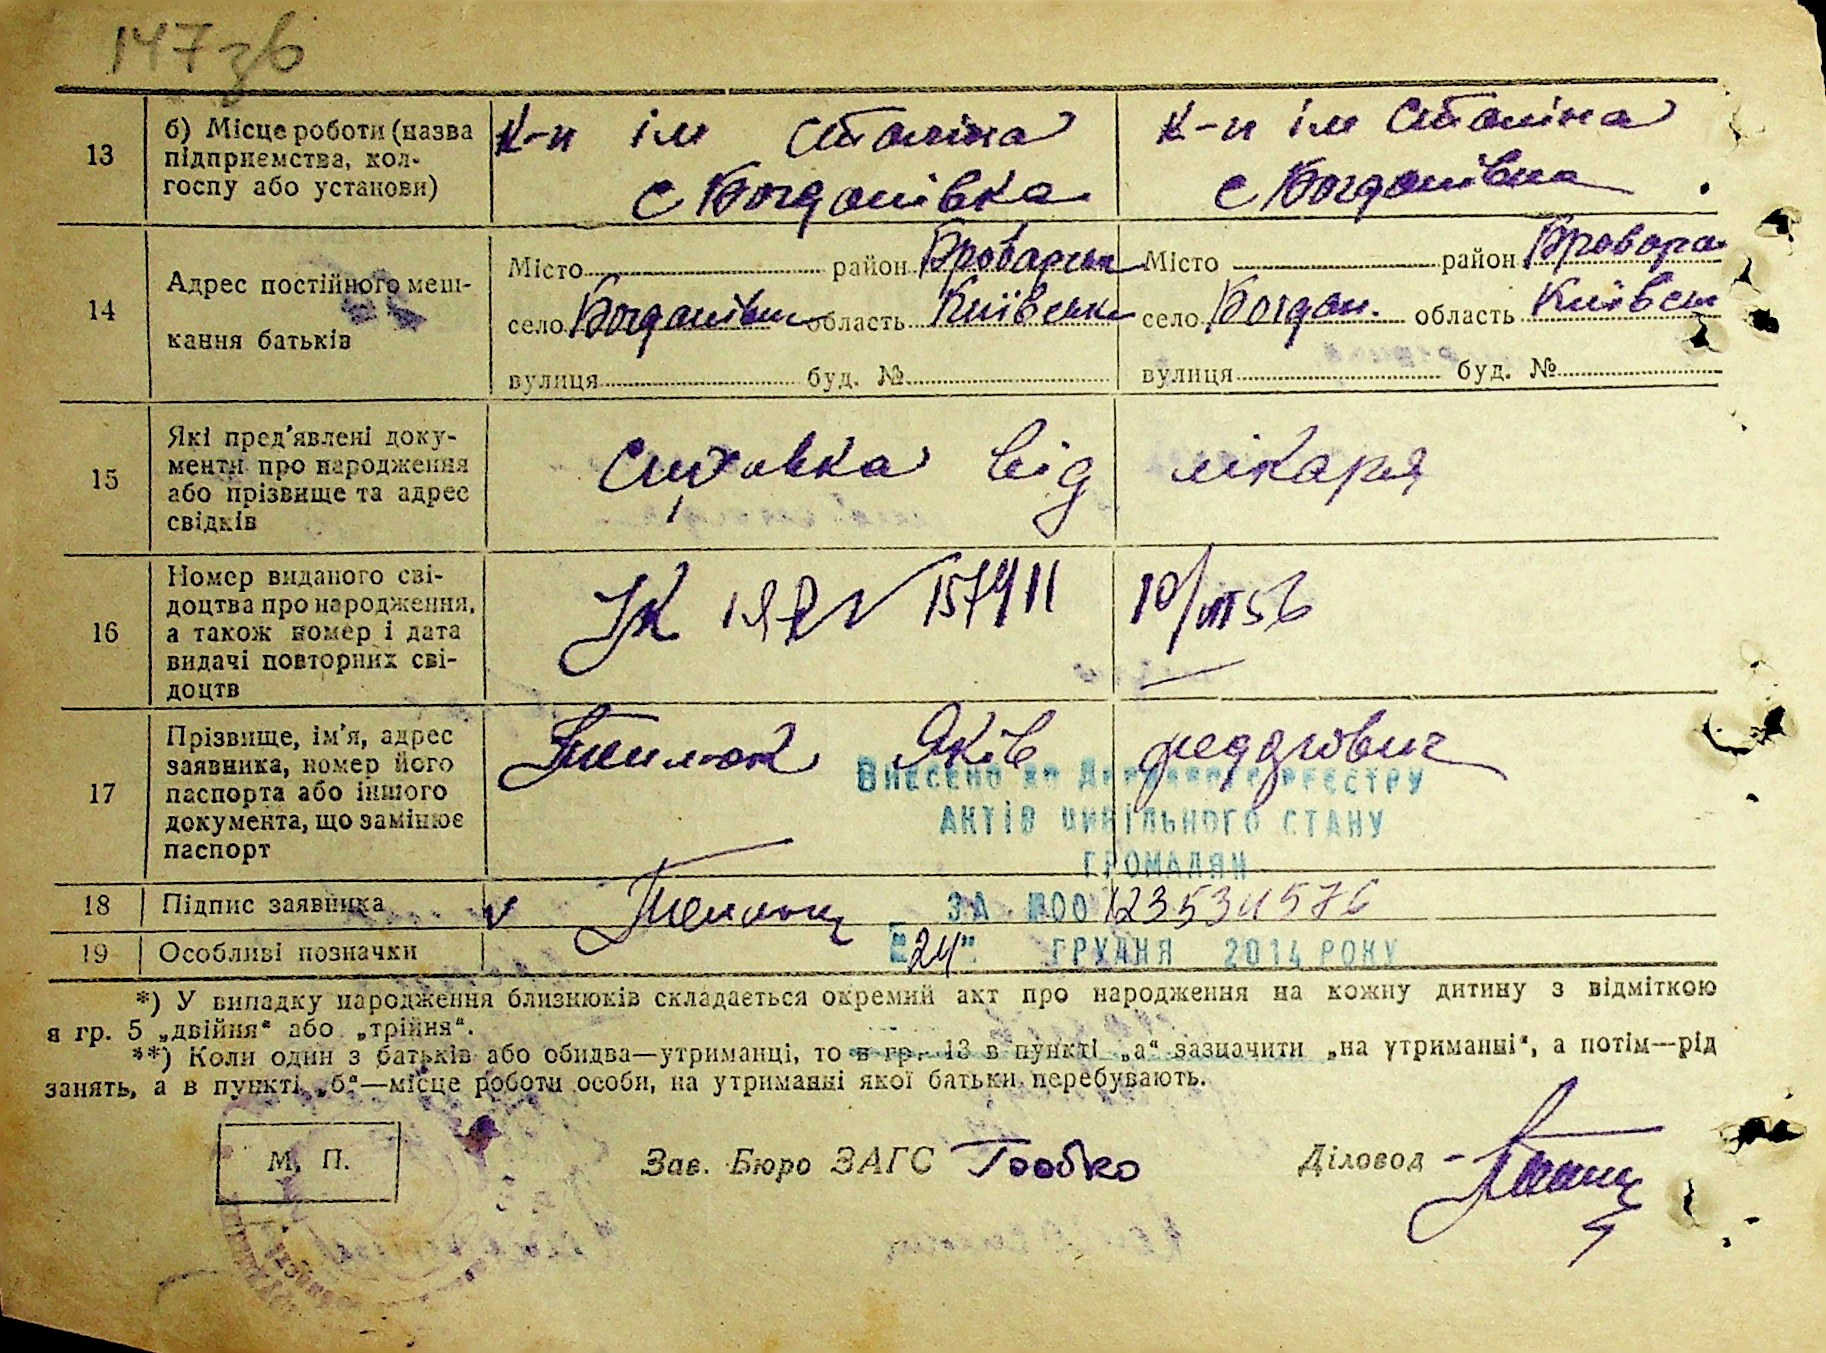 147зв
13
б) Місце роботи (назва
підприємства, кол-
госпу або установи)
К-п ім Сталіна
с Богданівка
К-п ім Сталіна
с Богданівка
14
Адрес постійного меш-
кання батьків
Місто район Броварськ
село Богданівка область Київськ
вулиця буд. №
Місто район Бровара
село Богдан. область Київськ
вулиця буд. №
15
Які пред'явлені доку-
менти про народження
або прізвище та адрес
свідків
Справка від лікаря
16
Номер виданого сві-
доцтва про народження,
а також номер і дата
видачі повторних сві-
доцтв
157411 10/VIII 56
17
Прізвище, ім'я, адрес
заявника, номер його
паспорта або іншого
документа, що замінює
паспорт
Яків
Внесено до Державного реєстру
актів цивільного стану
громадян
за №00123534576
"24" грудня 2014 року
18
Підпис заявника
19
Особливі позначки
*) У випадку народження близнюків складається окремий акт про народження на кожну дитину з відміткою
в гр. 5 „двійня" або „трійня".
**) Коли один з батьків або обидва—утриманці, то в гр. 13 в пункті „а" зазначити „на утриманні", а потім—рід
занять, а в пункті „б"—місце роботи особи, на утриманні якої батьки перебувають.
М. П.
Зав. Бюро ЗАГС
Діловод